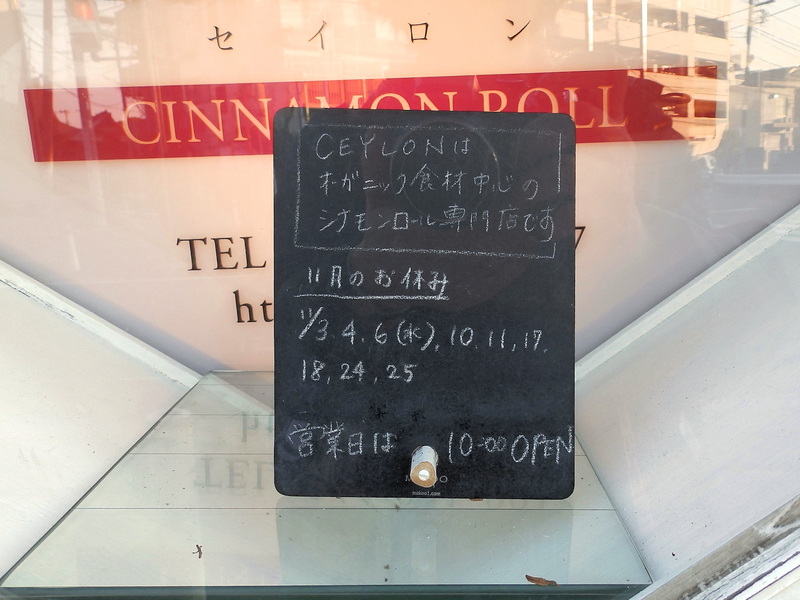 セイロン
CINNAMON ROLL
CEYLONは
オーガニック食材中心の
シナモンロール専門店です
TEL 7
ht
11月のお休み
11/3.4.6(水),10.11,17.
18,24,25
営業日は 10:00 OPEN